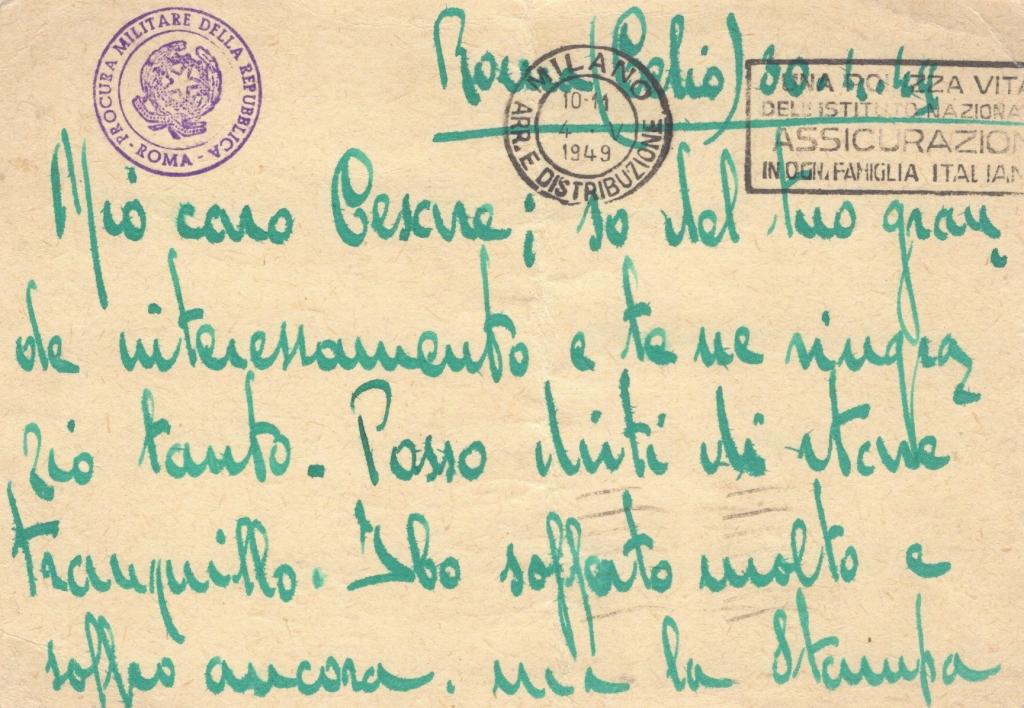 PROCURA MILITARE DELLA REPUBBLICA - ROMA -
Roma (Celio) 30.4.49
MILANO
10-11
4 - V
1949
ARR. E DISTRIBUZIONE
UNA POLIZZA VITA
DELL'ISTITUTO NAZIONA
ASSICURAZION
IN OGNI FAMIGLIA ITALIAN
Mio caro Cesare; so del tuo gran
de interessamento e te ne ringra
zio tanto. Posso dirti di stare
tranquillo. Ibo sofferto molto e
soffro ancora. ma la Stampa